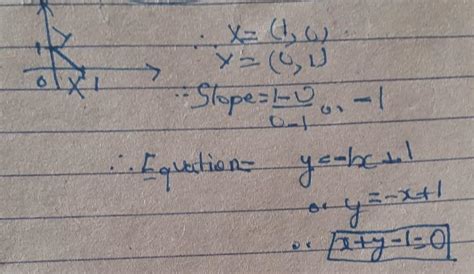 1 Y
0 X 1
∴ X = (1, 0)
Y = (0, 1)
∵ Slope = 1-0/0-1 or -1
∴ Equation = y = -1x + 1
or y = -x + 1
or x + y - 1 = 0